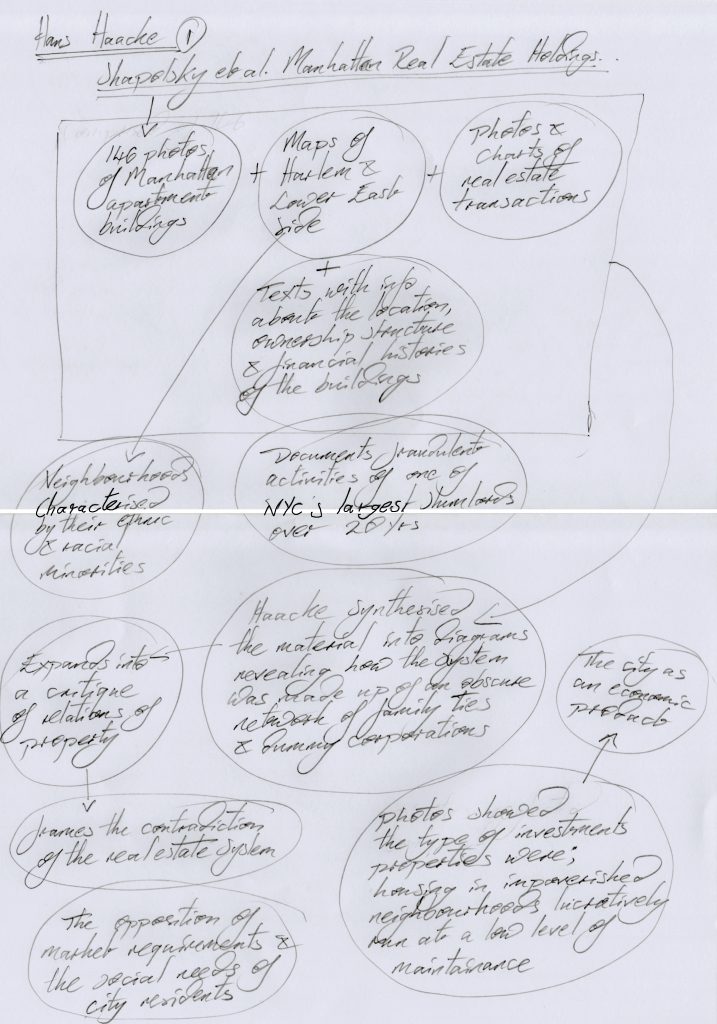 Hans Haacke ①
Shapolsky et al. Manhattan Real Estate Holdings..
146 photos
of Manhattan
apartment
buildings
+
Maps of
Harlem &
Lower East
Side
+
Photos &
Charts of
real estate
transactions
+
Texts with info
about the location,
ownership structure
& financial histories
of the buildings
Neighbourhoods
Characterised
by their ethnic
& racial
minorities
Documents fraudulent
activities of one of
NYC's largest slumlords
over 20 yrs
Haacke synthesised
the material into diagrams
revealing how the system
was made up of an obscure
network of family ties
& dummy corporations
Expands into
a critique
of relations of
property
The city as
an economic
product
frames the contradiction
of the real estate system
Photos showed
the type of investments
properties were;
housing in impoverished
neighbourhoods lucratively
run at a low level of
maintainance
The opposition of
market requirements &
the social needs of
city residents